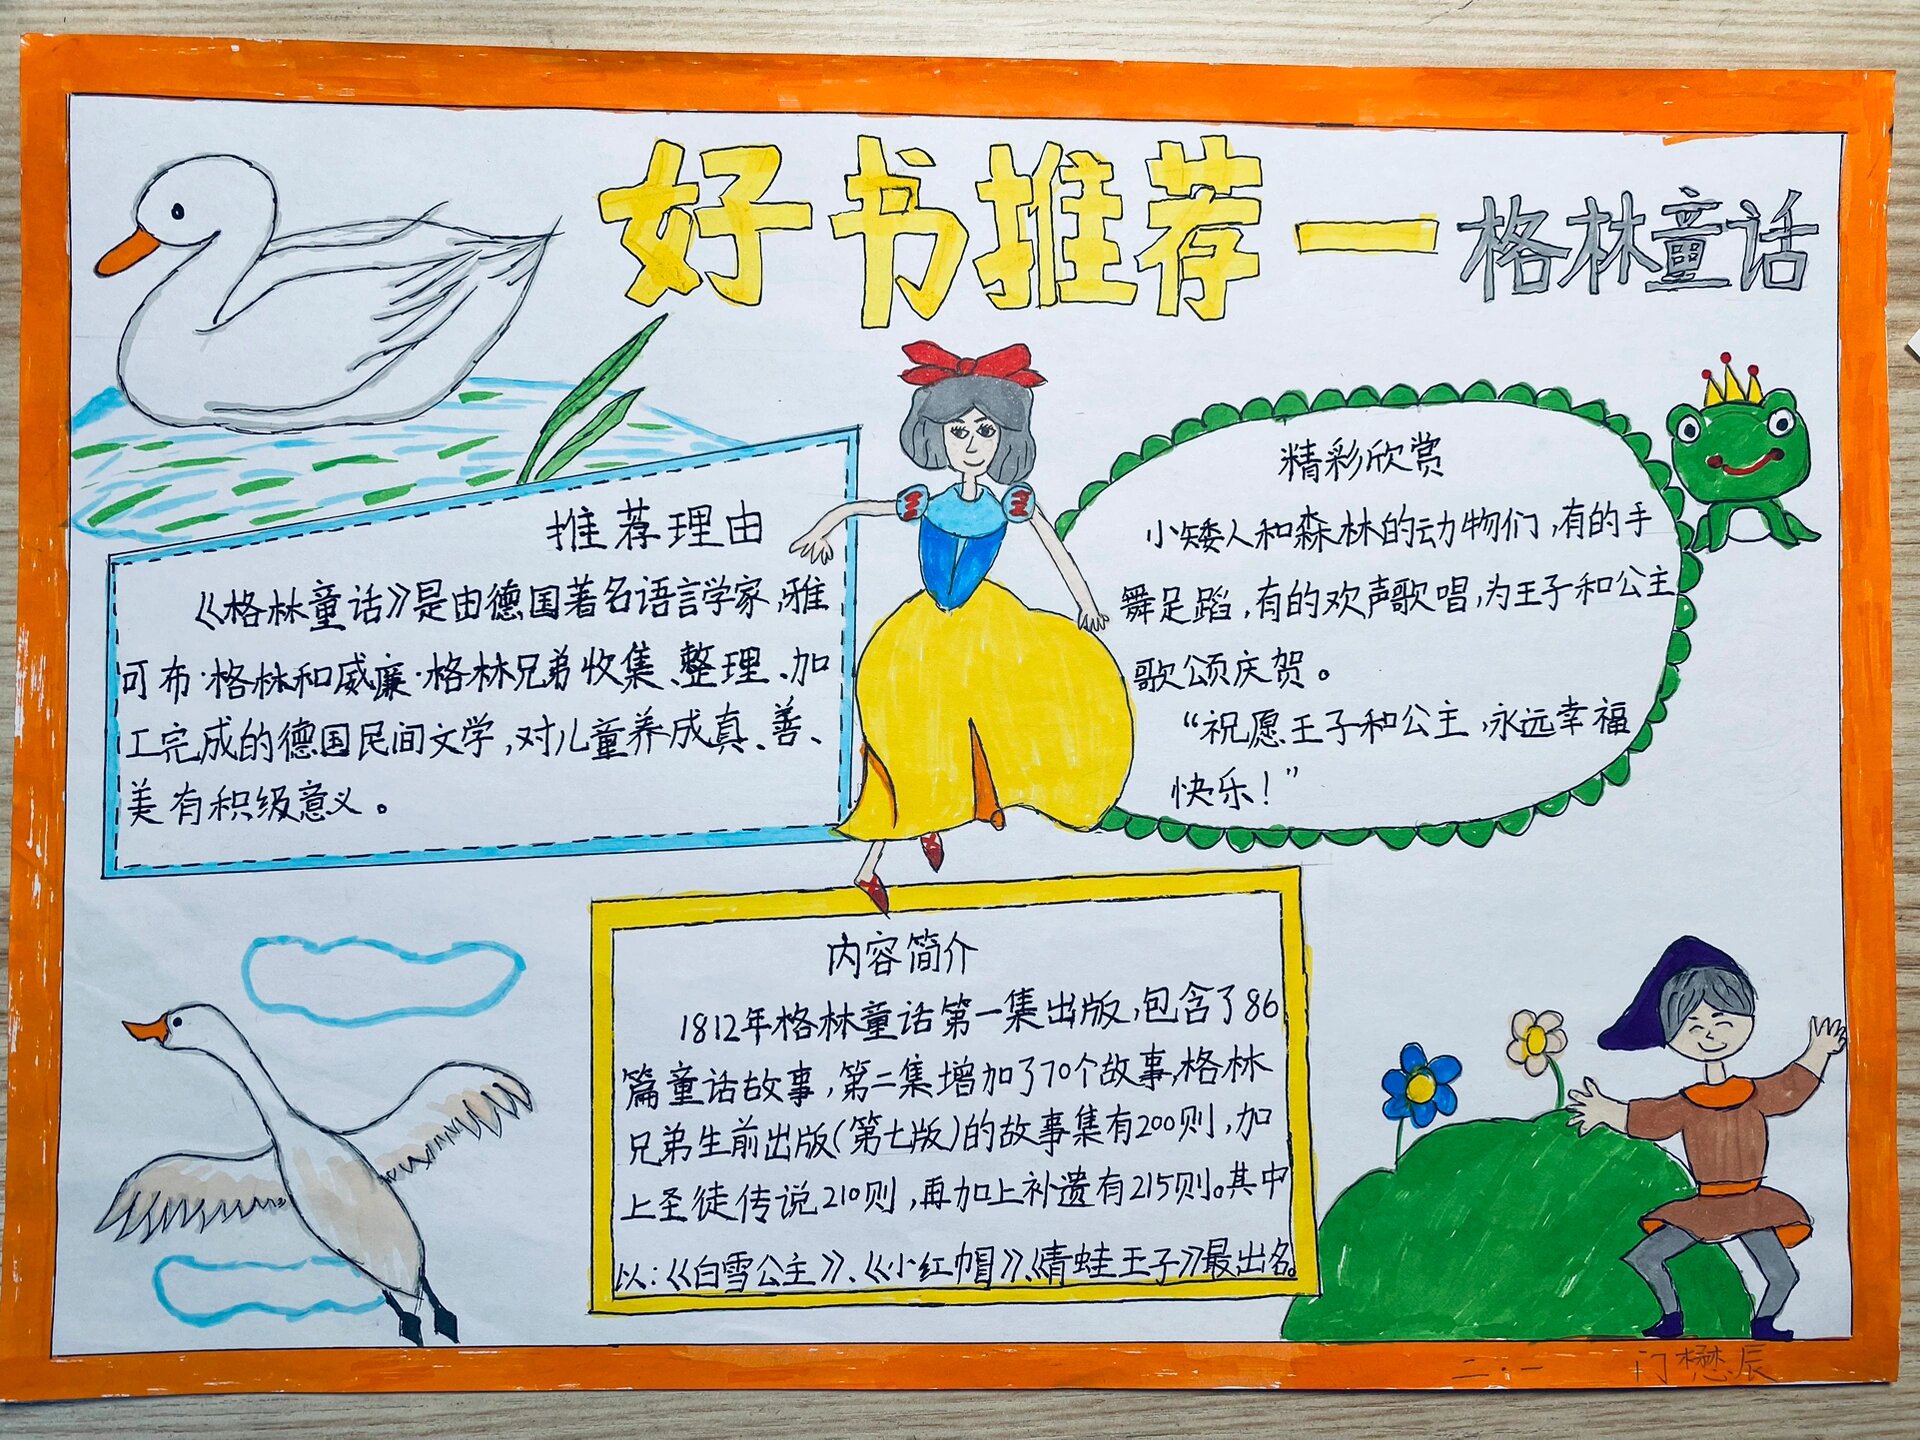 好书推荐一格林童话
推荐理由
《格林童话》是由德国著名语言学家,雅
可布·格林和威廉·格林兄弟收集、整理、加
工完成的德国民间文学,对儿童养成真、善、
美有积级意义。
精彩欣赏
小矮人和森林的动物们,有的手
舞足蹈,有的欢声歌唱,为王子和公主
歌颂庆贺。
“祝愿王子和公主,永远幸福
快乐!”
内容简介
1812年格林童话第一集出版,包含了86
篇童话故事,第二集增加了70个故事,格林
兄弟生前出版(第七版)的故事集有200则,加
上圣徒传说210则,再加上补遗有215则。其中
以:《白雪公主》、《小红帽》、《青蛙王子》最出名。
二·一 门懋辰